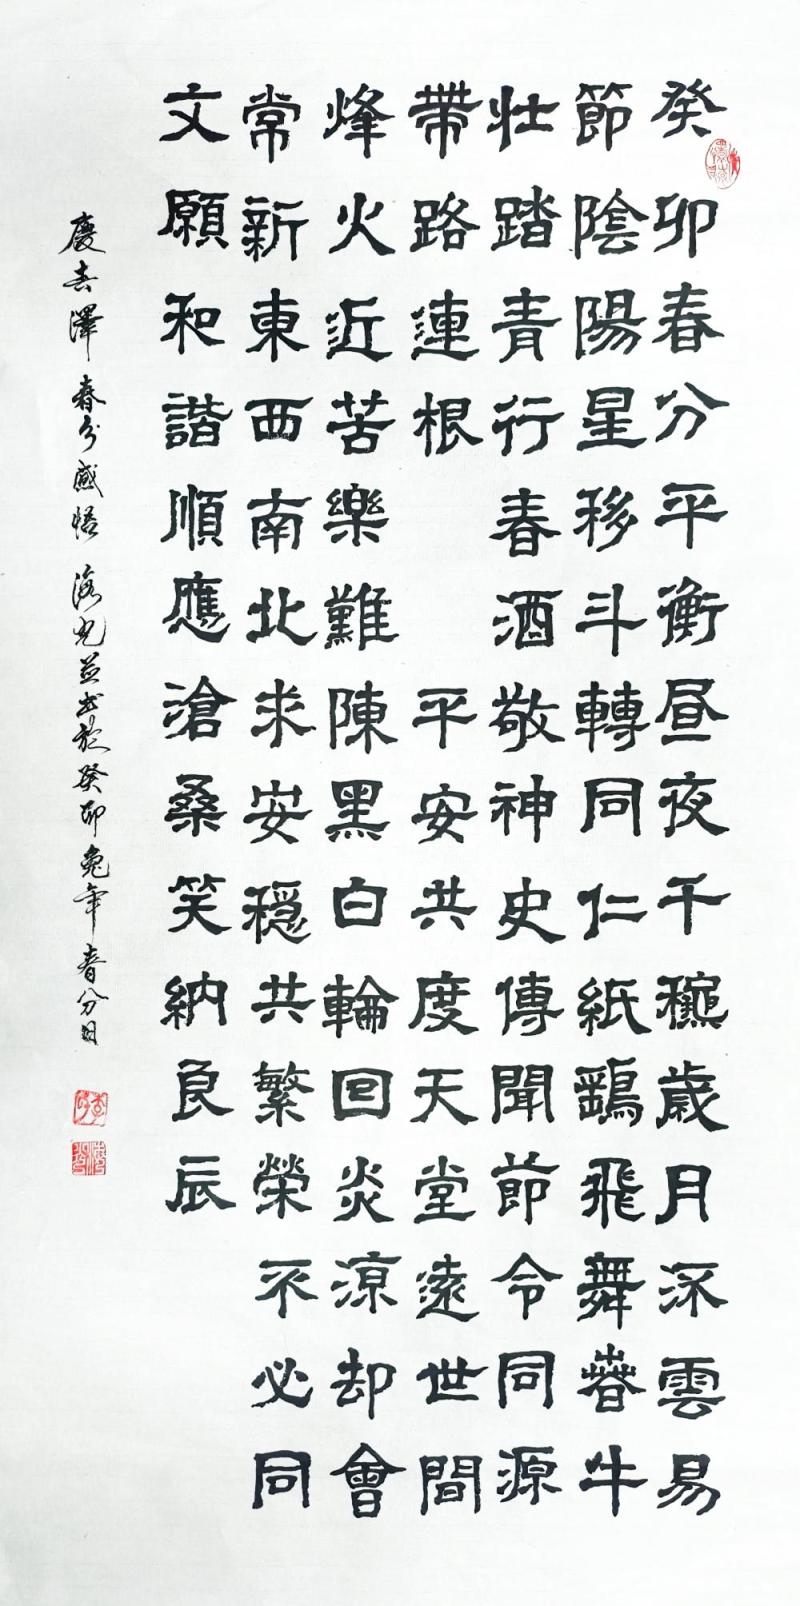 癸卯春分平衡昼夜千穐歲月深雲易
節陰陽星移斗轉同仁紙鷂飛舞萅牛
壯踏青行春酒敬神史傳聞節令同源
帶路連根 平安共度天堂遠世間
烽火近苦樂難陳黑白輪回炎涼却會
常新東西南北求安穩共繁榮不必同
文願和諧順應滄桑笑納良辰
慶春澤 春分感悟 並書於癸卯兔年春分日